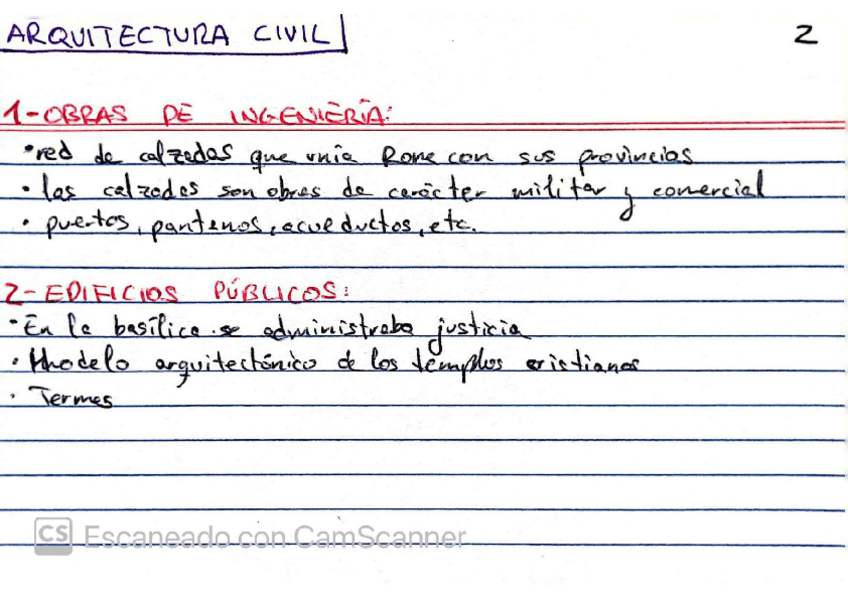 ARQUITECTURA CIVIL
2
1-OBRAS DE INGENIERÍA:
• red de calzadas que unía Roma con sus provincias
• las calzadas son obras de carácter militar y comercial
• puertos, pantanos, acueductos, etc.
2- EDIFICIOS PÚBLICOS:
• En la basílica se administraba justicia
• Modelo arquitectónico de los templos cristianos
• Termas
CS Escaneado con CamScanner